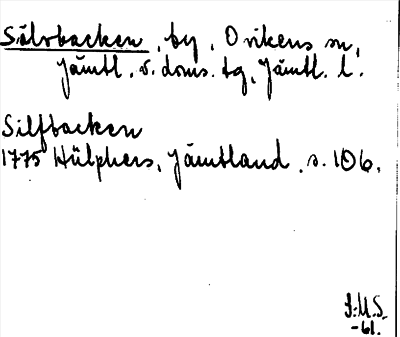 Silvbacken, by, Ovikens sn,
Jämtl. v. doms. tg, Jämtl. l.
Silfbacken
1775 Hülphers, Jämtland, s. 106.
J.M.S.
-61.